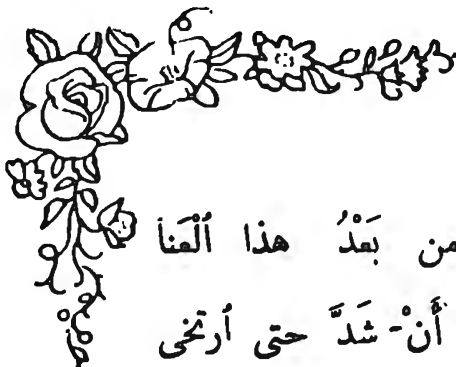 من بَعْدُ هذا ٱلْعَنا
أَنْ - شَدَّ حتى ٱرتخى